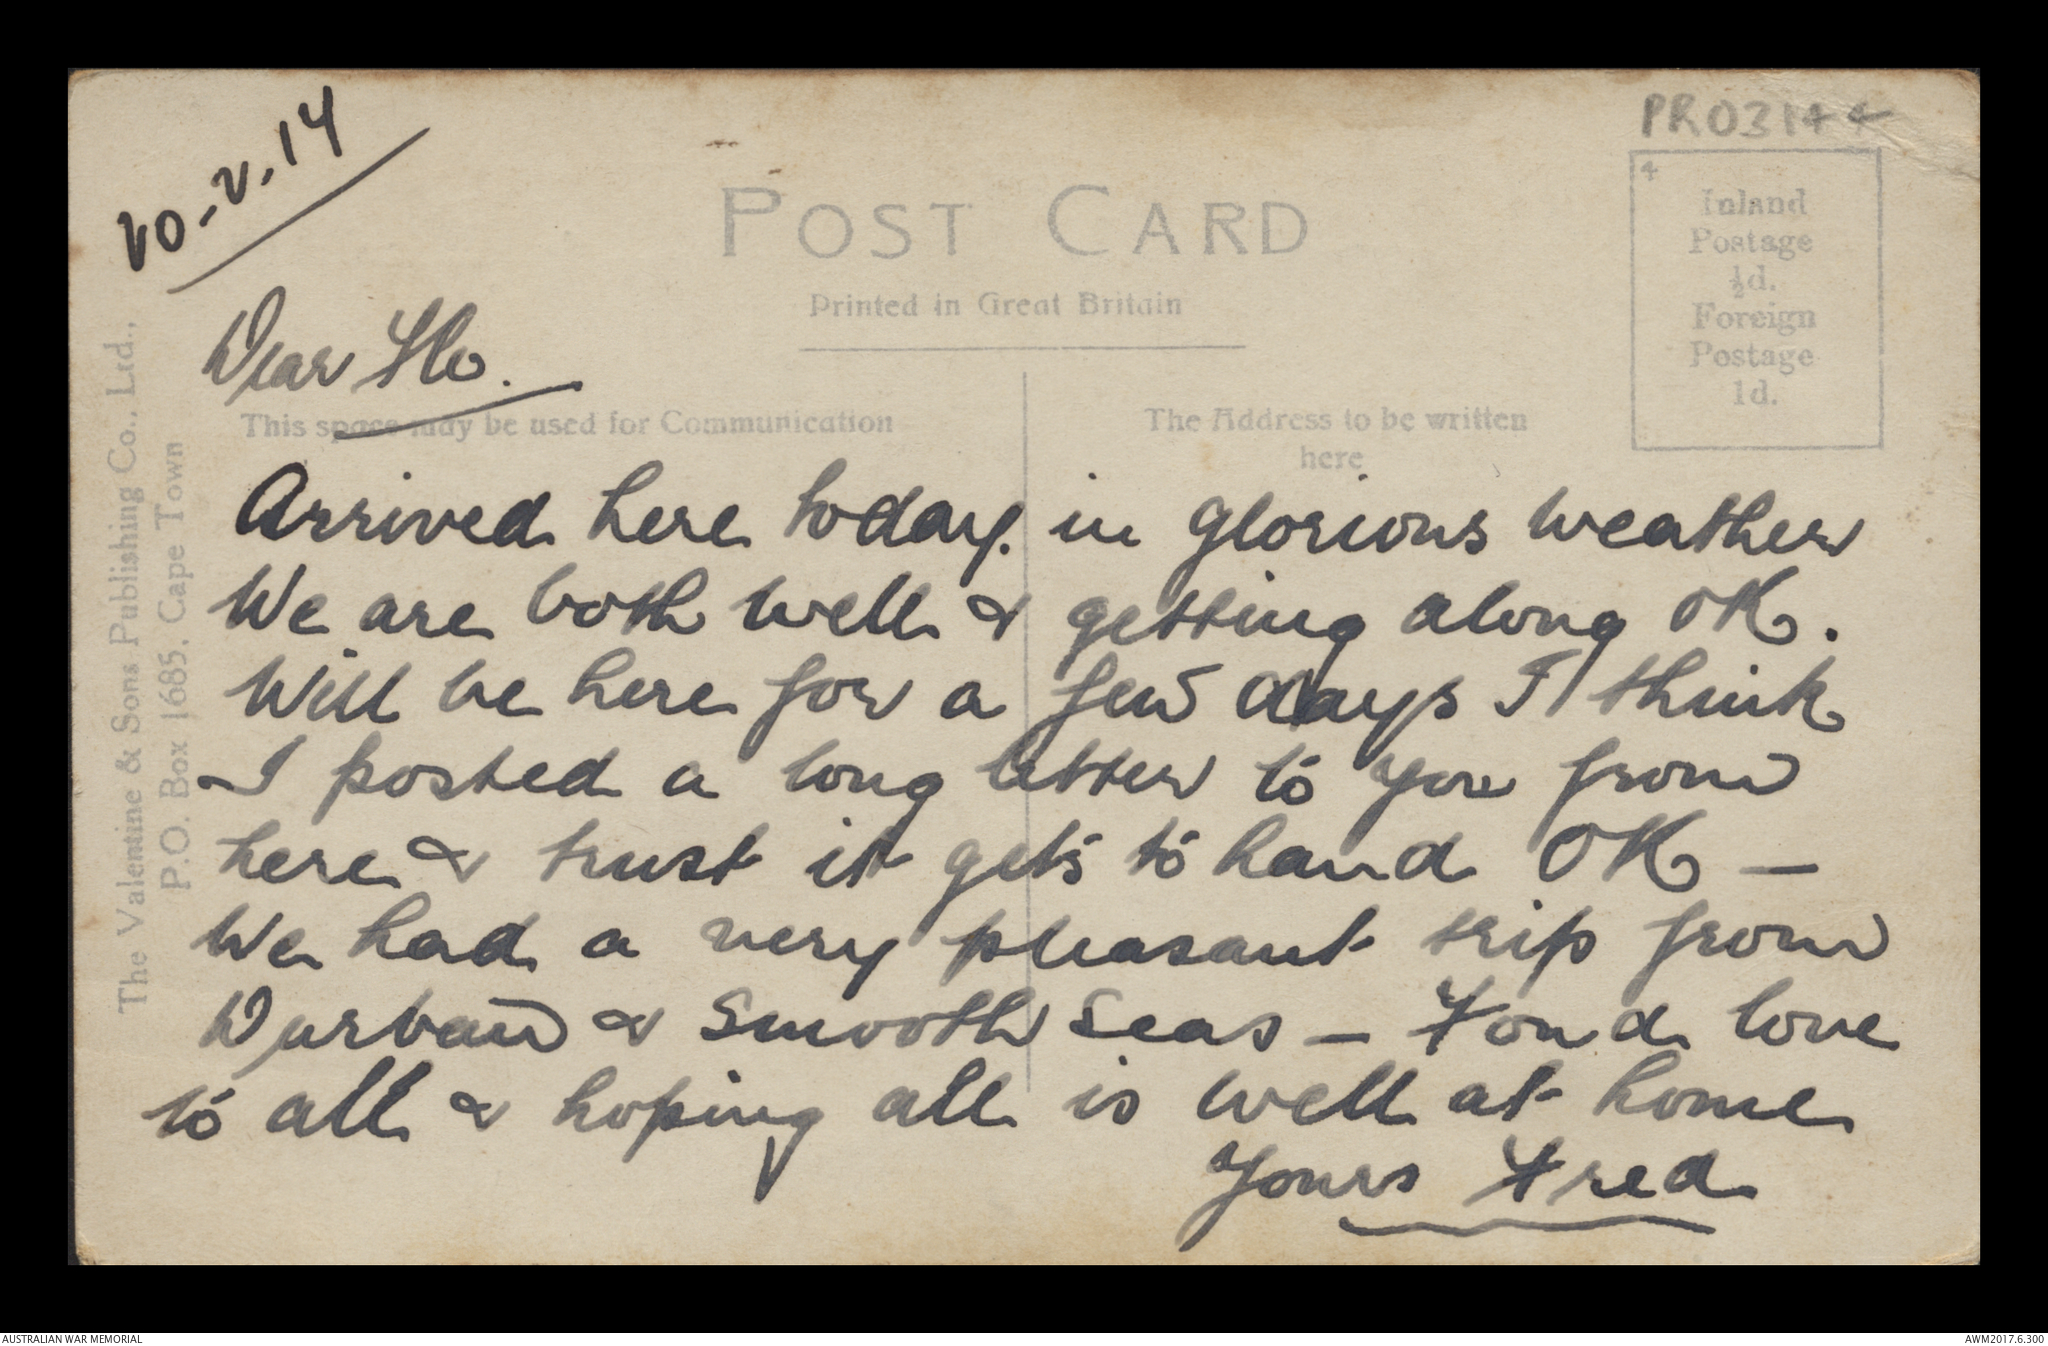 20-2.17
PR03144
POST CARD
Printed in Great Britain
4
Inland
Postage
½d.
Foreign
Postage
1d.
The Valentine & Sons Publishing Co., Ltd.,
P.O. Box 1685, Cape Town
Dear Flo.
This space may be used for Communication
The Address to be written
here
Arrived here today. in glorious weather
We are both well & getting along OK.
Will be here for a few days I think
I posted a long letter to you from
here & trust it gets to hand OK –
We had a very pleasant trip from
Durban & smooth seas – Fond love
to all & hoping all is well at home
Yours Fred
AUSTRALIAN WAR MEMORIAL
AWM2017.6.300